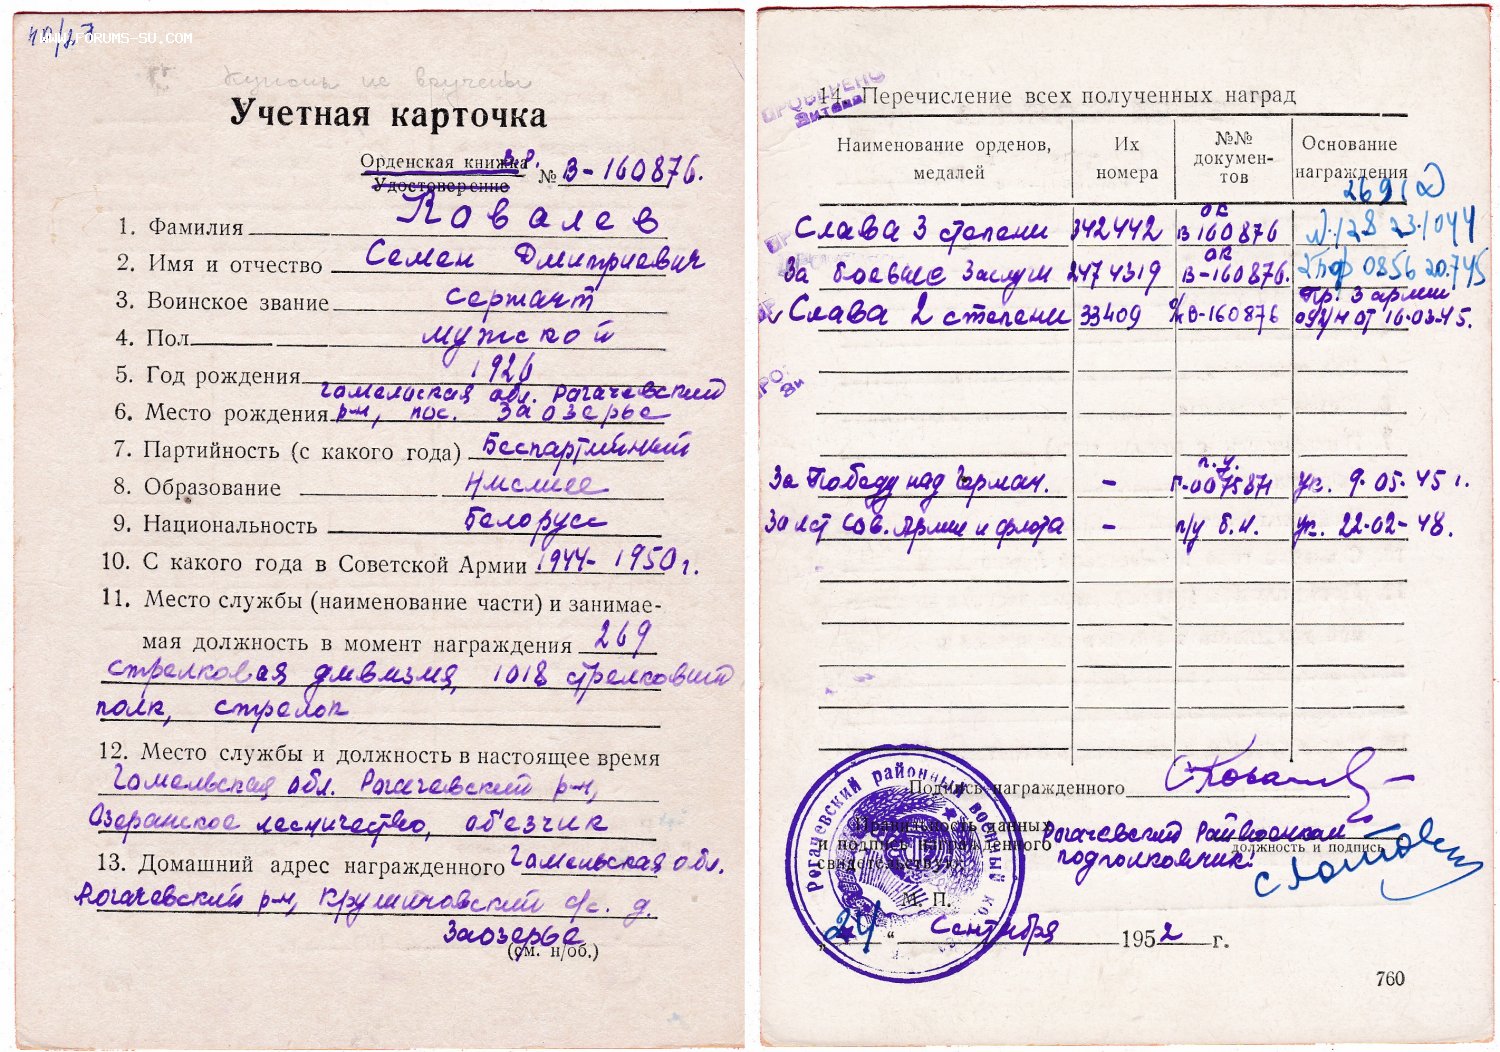 WWW.FORUMS-SU.COM
Купоны не вручены
Учетная карточка
Орденская книжка
Удостоверение
№ В-160876.
1. Фамилия Ковалев
2. Имя и отчество Семен Дмитриевич
3. Воинское звание сержант
4. Пол мужской
5. Год рождения 1926
Гомельская обл. Рогачевский
6. Место рождения р-н, пос. Заозерье
7. Партийность (с какого года) Беспартийный
8. Образование Низшее
9. Национальность Белорус
10. С какого года в Советской Армии 1944-1950г.
11. Место службы (наименование части) и занимае-
мая должность в момент награждения 269
стрелковая дивизия, 1018 стрелковый
полк, стрелок
12. Место службы и должность в настоящее время
Гомельская обл. Рогачевский р-н,
Озеранское лесничество, об'езчик
13. Домашний адрес награжденного Гомельская обл.
Рогачевский р-н, Крушиновский с/с. д.
Заозерье
(см. н/об.)
ПРОВЕРЕНО
14. Перечисление всех полученных наград
Наименование орденов, медалей
Их номера
№№ докумен-тов
Основание награждения
269 (2)
Слава 3 степени 342442 ок В 160876 №128 23.1044
За боевые заслуги 2474319 ок В-160876. 0856 20.745
Пр. 3 армии
Слава 2 степени 33409 В-160876 от 16.03.45.
За Победу над Герман. - п.у. Г-0075871 ук. 9.05.45 г.
За ист Сов. Армии и флота - п/у б.н. ук. 22-02-48.
Подпись награжденного С Ковалев
Правильность данных
и подпись награжденного
свидетельствую:
Рогачевский Райвоенком
должность и подпись
подполковник:
М. П.
Рогачевский районный военный
„24“ Сентября 1952 г.
760